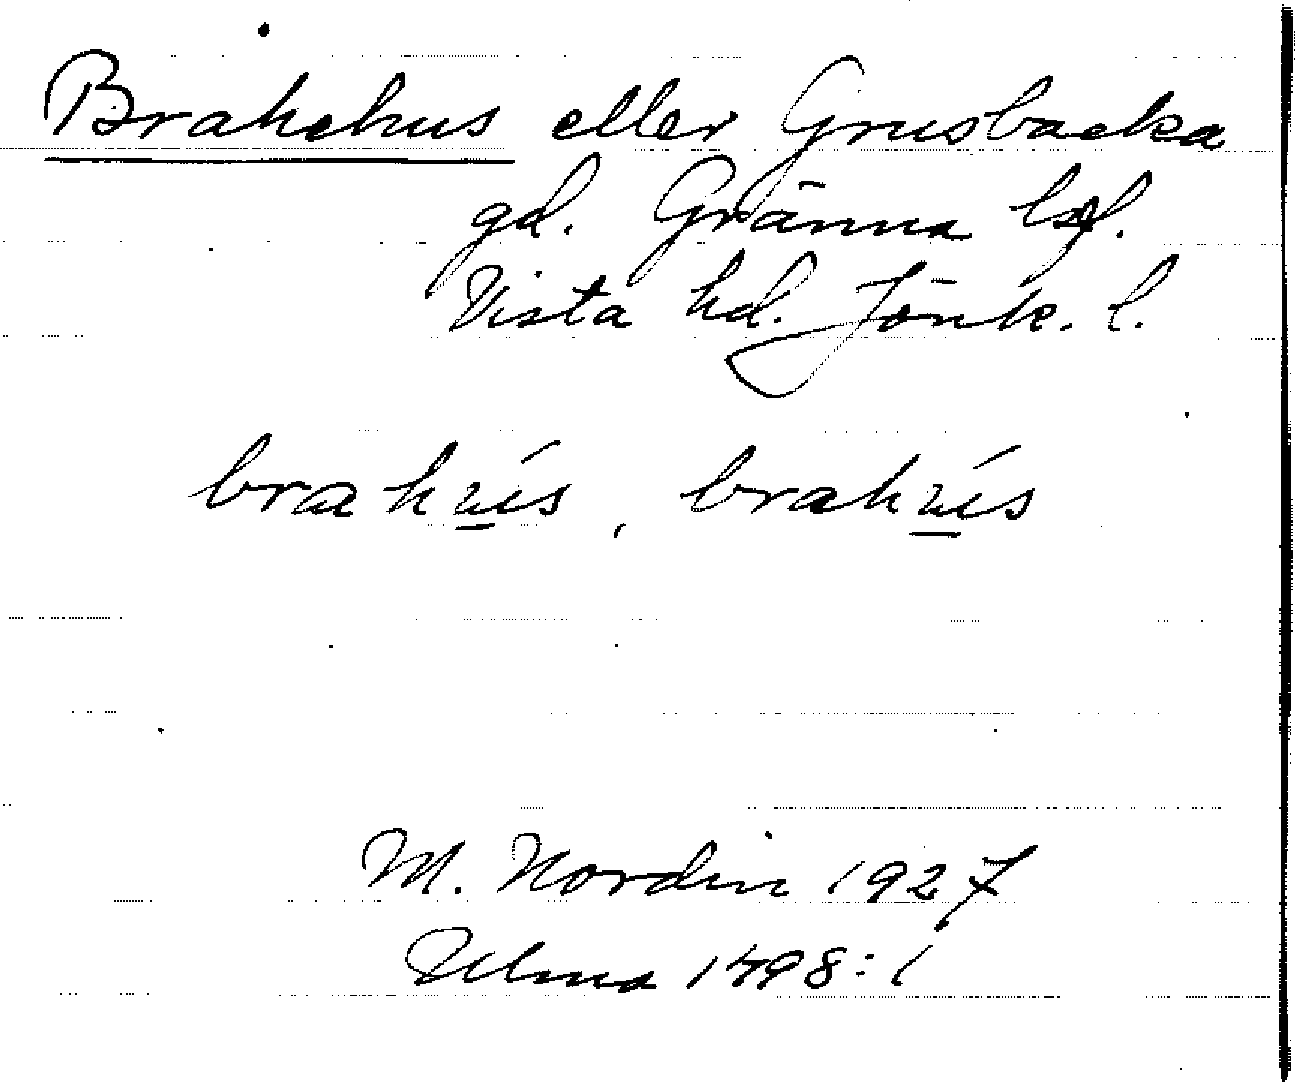 Brahehus eller Grusbacka
gd. Gränna lsf.
Vista hd. Jönk. l.
M. Nordin 1927
Ulma 1498:1